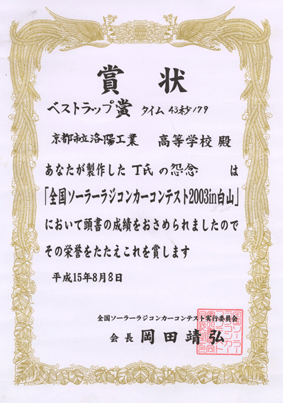 賞状
ベストラップ賞 タイム 43秒179
京都市立洛陽工業 高等学校 殿
あなたが製作した T氏の怨念 は
「全国ソーラーラジコンカーコンテスト2003in白山」
において頭書の成績をおさめられましたので
その栄誉をたたえこれを賞します
平成15年8月8日
全国ソーラーラジコンカーコンテスト実行委員会
会長 岡田靖弘